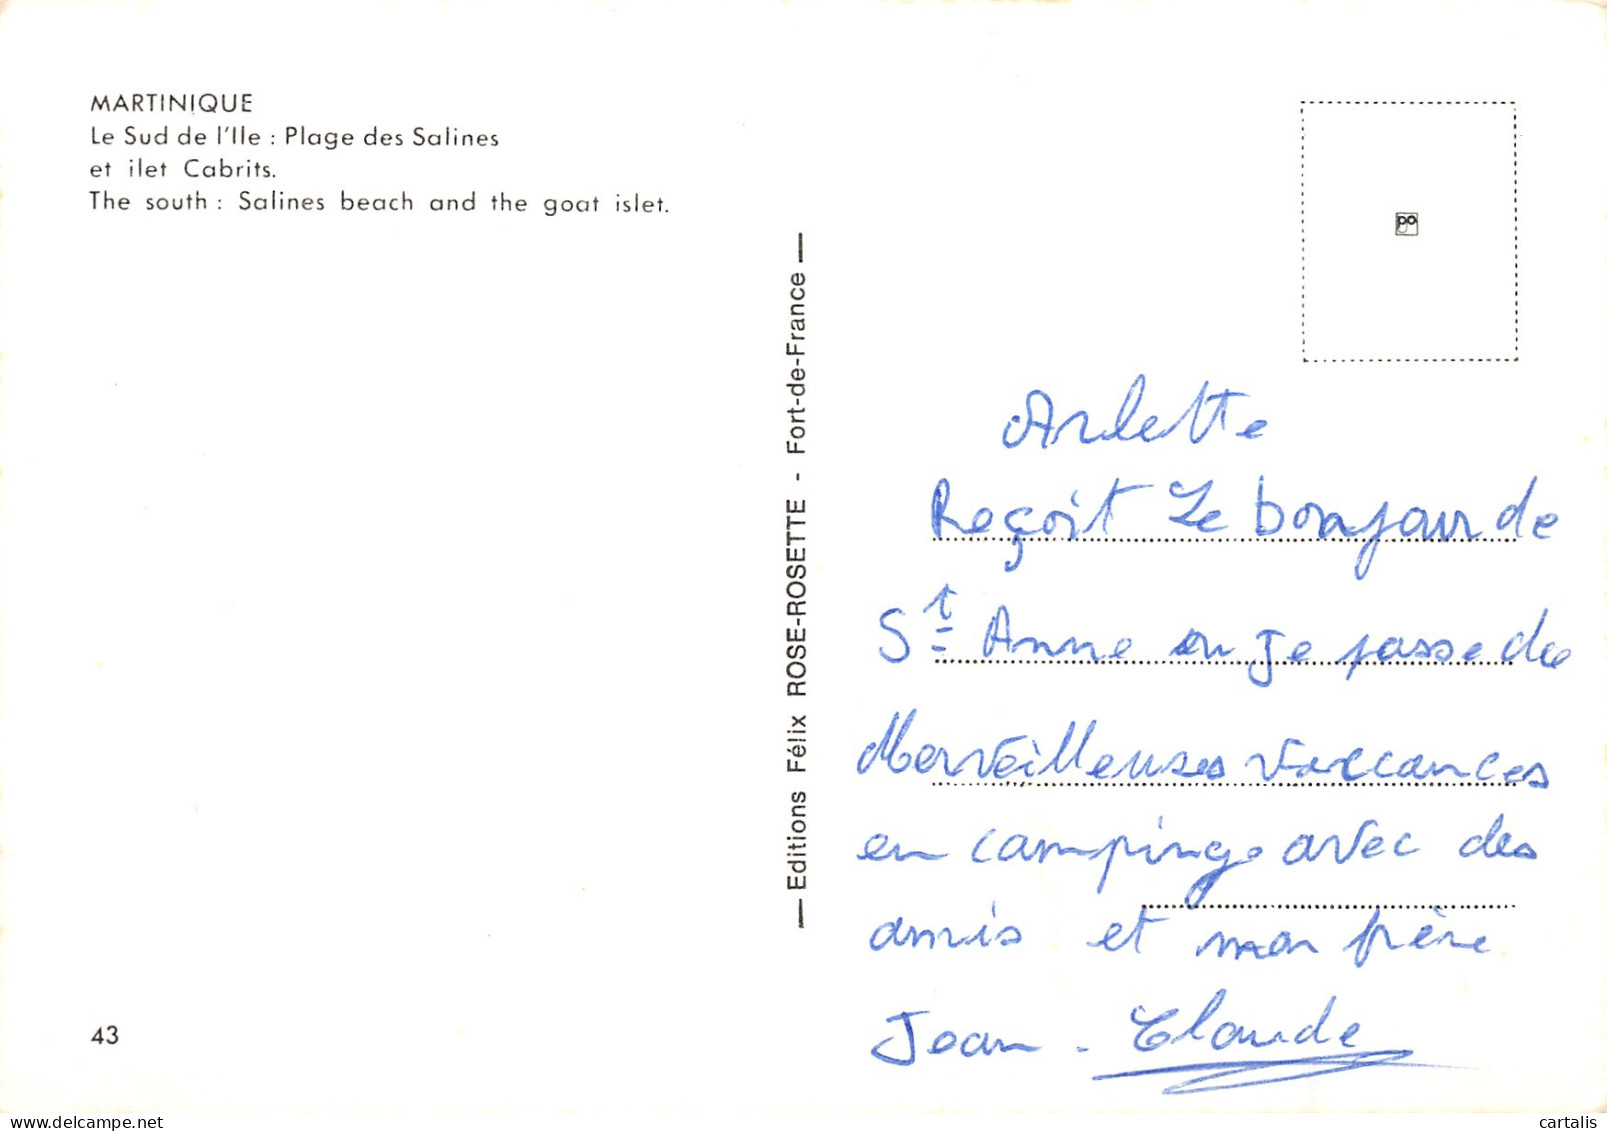 MARTINIQUE
Le Sud de l'Ile : Plage des Salines
et ilet Cabrits.
The south : Salines beach and the goat islet.
43
Editions Félix ROSE-ROSETTE - Fort-de-France
po
Arlette
Reçoit Le bonjour de
St Anne ou Je passe de
Merveilleuses vaccances
en camping avec des
amis et mon frère
Jean-Claude
cartalis
delcampe.net